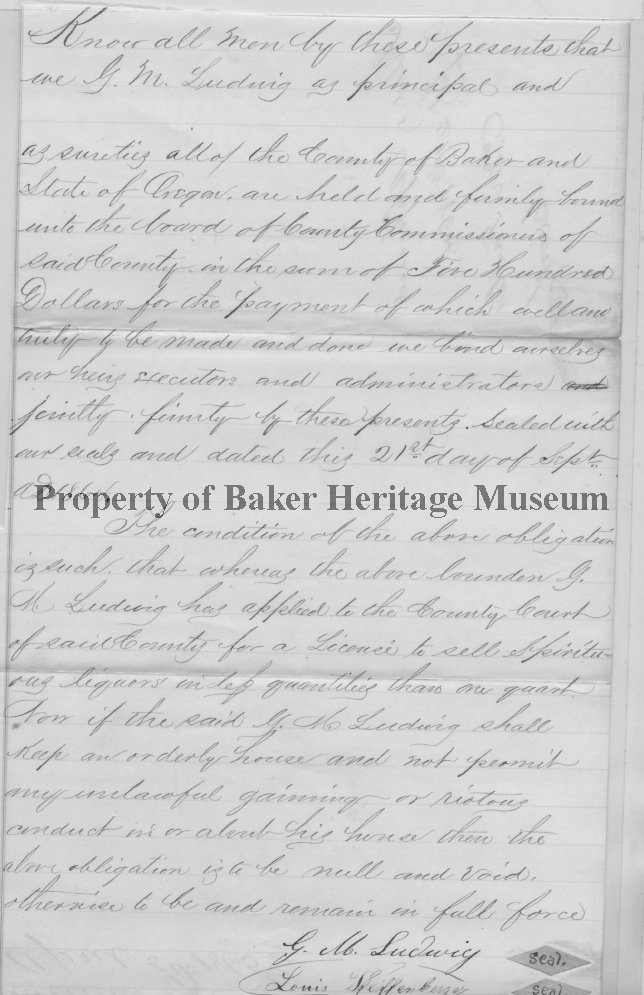 Know all Men by these presents that
we G. M. Ludwig as principal and
as sureties all of the County of Baker and
State of Oregon. are held and firmly bound
unto the board of County Commissioners of
said County. in the sum of Five Hundred
Dollars for the payment of which well and
truly to be made and done we bind ourselves
our heirs executors and administrators and
jointly. firmly by these presents. Sealed with
our seals and dated this 21st day of Sept.
AD
Property of Baker Heritage Museum
The condition of the above obligation
is such. that whereas the above bounden G.
M Ludwig has applied to the County Court
of said County for a License to sell Spiritu-
ous liquors in less quantities than one quart.
Now if the said G. M Ludwig shall
Keep an orderly house and not permit
any unlawful gaming or riotous
conduct in or about his house then the
above obligation is to be null and void.
otherwise to be and remain in full force
G. M. Ludwig Seal.
Louis Seal